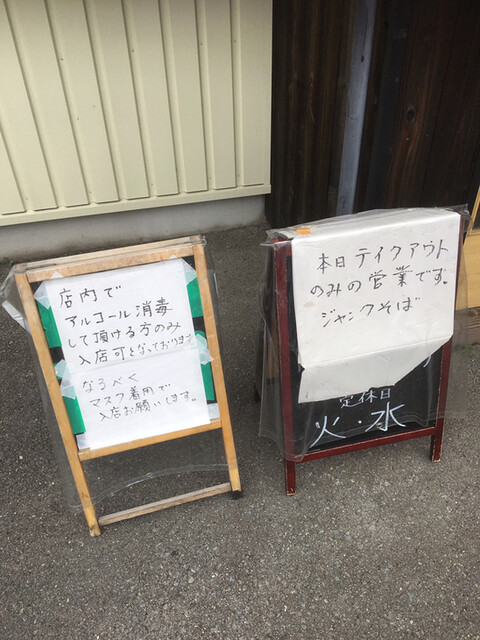 店内で
アルコール消毒
して頂ける方のみ
入店可となっております。
なるべく
マスク着用で
入店お願いします。
本日テイクアウト
のみの営業です。
ジャンクそば
定休日
火・水